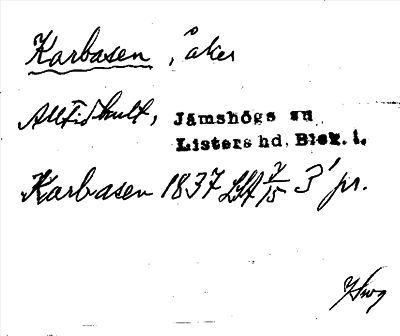 Karbasen, åker
Alltidhult, Jämshögs sn
Listers hd, Blek. l.
Karbasen 1837 LSA 7/15 3' pr.